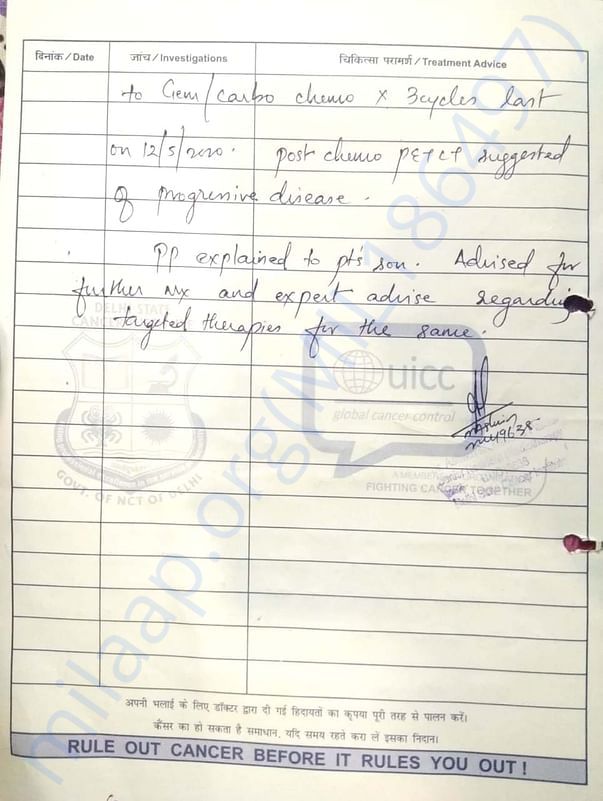 दिनांक / Date जांच / Investigations चिकित्सा परामर्श / Treatment Advice
to Gem/carbo chemo x 3cycles last
on 12/5/2020. post chemo PET CT suggested
of progressive disease.
PP explained to pt's son. Advised for
further mx and expert advise regarding
targeted therapies for the same.
DELHI STATE
CANCER
GOVT. OF NCT OF DELHI
uicc
global cancer control
A MEMBER ORGANISATION
FIGHTING CANCER TOGETHER
milaap.org(MIL186497)
अपनी भलाई के लिए डॉक्टर द्वारा दी गई हिदायतों का कृपया पूरी तरह से पालन करें।
कैंसर का हो सकता है समाधान, यदि समय रहते करा लें इसका निदान।
RULE OUT CANCER BEFORE IT RULES YOU OUT !